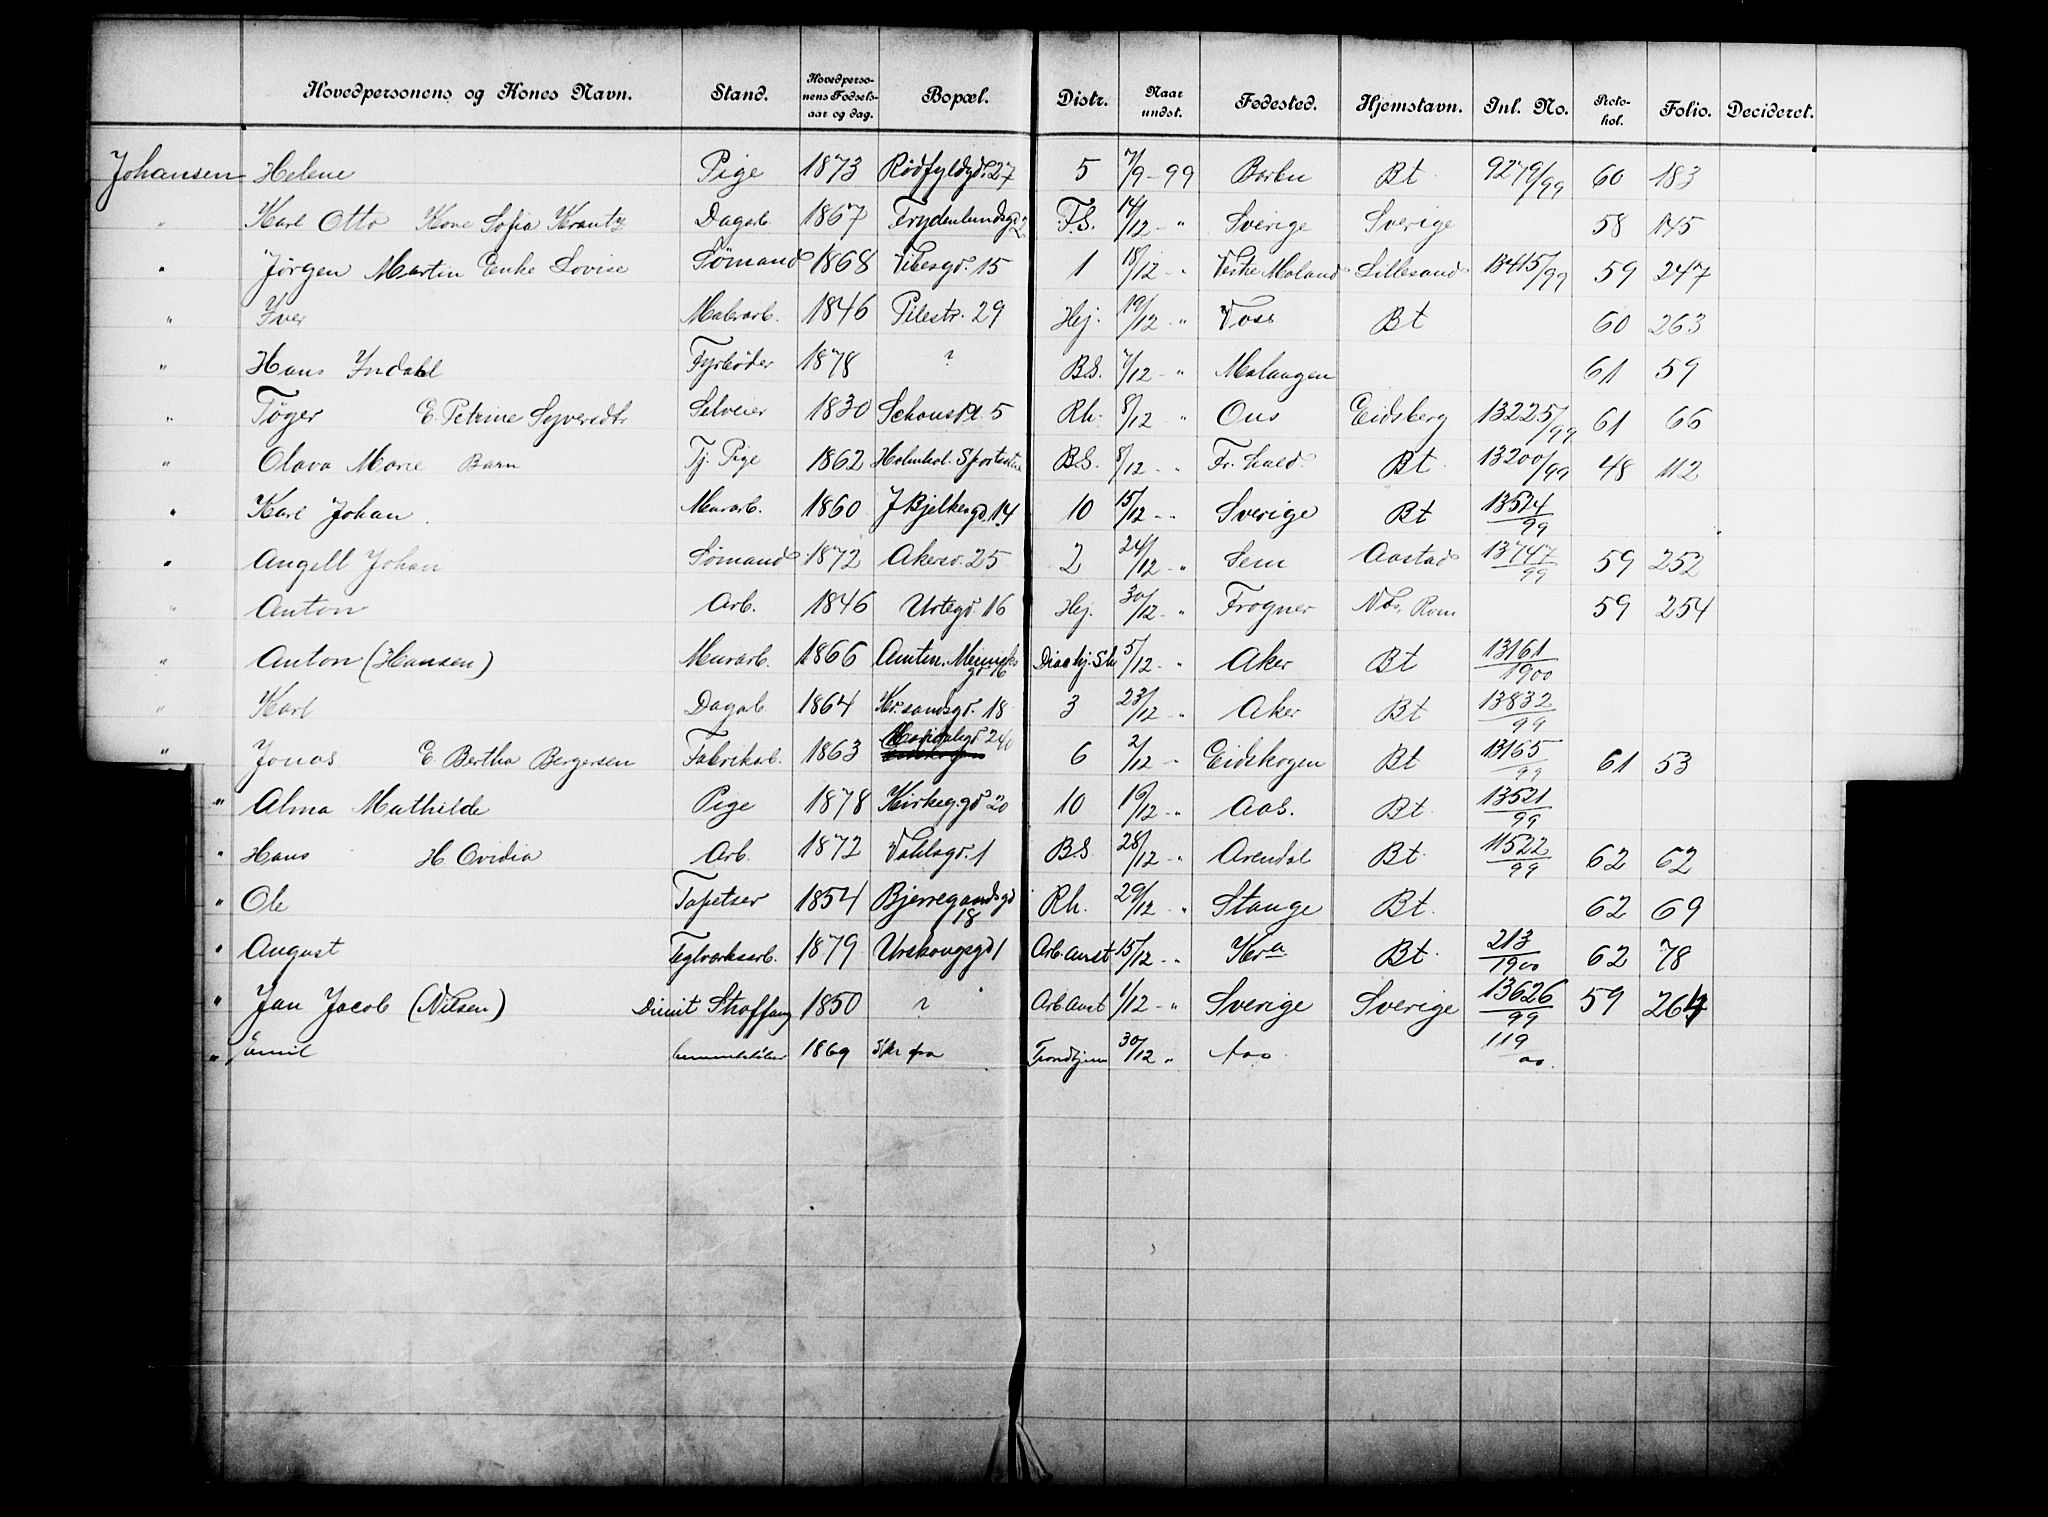 Hovedpersonens og Kones Navn. Stand. Hovedpersonens Fødselsaar og dag. Bopæl. Distr. Naar undst. Fødested. Hjemstavn. Inl. No. Protokol. Folio. Decideret.
Johansen Helene Pige 1873 Rødfyldgd. 27 5 7/9-99 Barbu Bt 9279/99 60 183
" Karl Otto Kone Sofia Krantz Dagarb 1867 Frydenlundsgd 2 F.S. 14/12 - " Sverige Sverige 58 145
" Jørgen Martin Enke Lovise Sømand 1868 Vibesgd. 15 1 18/12 - " Vestre Moland Lillesand 13415/99 59 247
" Iver Malerarb. 1846 Pilestr. 29 Hej. 19/12 - " Voss Bt 60 263
" Hans Indahl Fyrbøder 1878 ? B.S. 7/12 - " Malangen 61 59
" Tøger E. Petrine Syversdtr Selveier 1830 Schous Pl. 5 Rh. 8/12 " Ous Eidsberg 13225/99 61 66
" Olava Marie Barn Tj. Pige 1862 Holmkol. B.S. 8/12 - " Fr. hald. Bt 13200/99 48 112
" Karl Johan Murarb. 1860 J Bjelkesgd. 14 10 15/12 - " Sverige Bt 13524/99
" Angell Johan Sømand 1872 Akersv. 25 2 24/12 " Sem Aastad 13747/99 59 252
" Anton Arb. 1846 Urtegd. 16 Hej. 30/12 - " Frogner Nbs. Rom 59 254
" Anton (Hansen) Murarb. 1866 Diakhj. Sth 5/12 - " Aker Bt 13161/1900
" Karl Dagarb 1864 Kr. sandsgd. 18 3 23/12 - " Aker Bt 13832/99
" Jonas E. Bertha Bergersen Fabrikarb. 1863 Maridalsgd 240 6 2/12 - " Eidskogen Bt 13165/99 61 53
" Alma Mathilde Pige 1878 Kirkeg.gd 20 10 16/12 - " Aas. Bt. 13521/99
" Hans H Ovidia Arb. 1872 Vahlsgd. 1 B.S. 28/12 - " Arendal Bt. 11522/99 62 62
" Ole Tapetser 1854 Bjerregaardsgd 18 Rh. 29/12 - " Stange Bt. 62 69
" August Teglværksarb. 1879 Urskougsgd 1 Arb. anst 15/12 - " Kra Bt. 213/1900 62 78
" Jan Jacob (Nilsen) Dimit Straffang 1850 ? Arb. Anst 1/12 - " Sverige Sverige 13626/99 59 264
" Emil 1869 Trondhjem 30/12 " Aas 119/00.